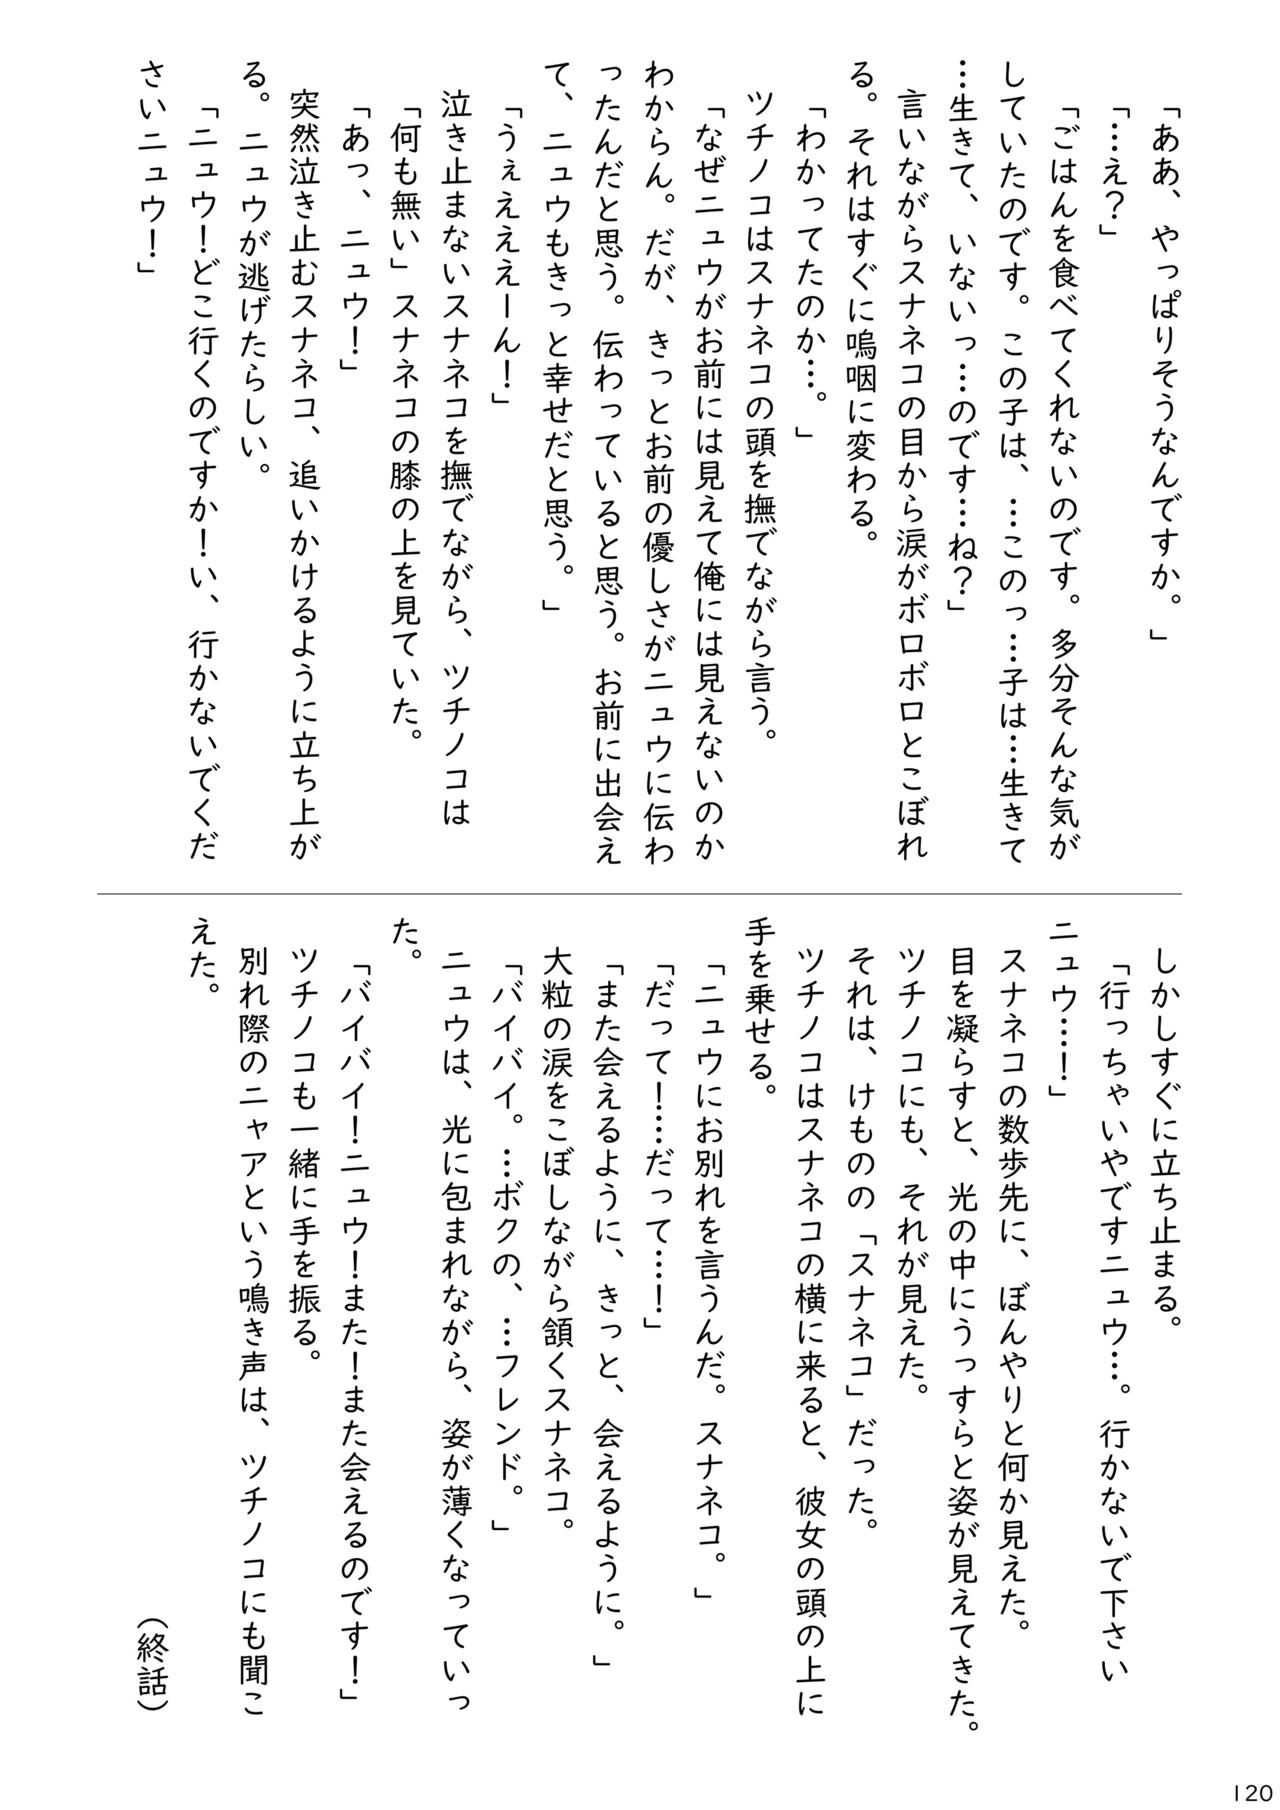 「ああ、やっぱりそうなんですか。」
「…え？」
「ごはんを食べてくれないのです。多分そんな気が
していたのです。この子は、…このっ…子は…生きて
…生きて、いないっ…のです…ね？」
言いながらスナネコの目から涙がボロボロとこぼれ
る。それはすぐに嗚咽に変わる。
「わかってたのか…。」
ツチノコはスナネコの頭を撫でながら言う。
「なぜニュウがお前には見えて俺には見えないのか
わからん。だが、きっとお前の優しさがニュウに伝わ
ったんだと思う。伝わっていると思う。お前に出会え
て、ニュウもきっと幸せだと思う。」
「うぇえええーん！」
泣き止まないスナネコを撫でながら、ツチノコは
「何も無い」スナネコの膝の上を見ていた。
「あっ、ニュウ！」
突然泣き止むスナネコ、追いかけるように立ち上が
る。ニュウが逃げたらしい。
「ニュウ！どこ行くのですか！い、行かないでくだ
さいニュウ！」
しかしすぐに立ち止まる。
「行っちゃいやですニュウ…。行かないで下さい
ニュウ…！」
スナネコの数歩先に、ぼんやりと何か見えた。
目を凝らすと、光の中にうっすらと姿が見えてきた。
ツチノコにも、それが見えた。
それは、けものの「スナネコ」だった。
ツチノコはスナネコの横に来ると、彼女の頭の上に
手を乗せる。
「ニュウにお別れを言うんだ。スナネコ。」
「だって！…だって…！」
「また会えるように、きっと、会えるように。」
大粒の涙をこぼしながら頷くスナネコ。
「バイバイ。…ボクの、…フレンド。」
ニュウは、光に包まれながら、姿が薄くなっていっ
た。
「バイバイ！ニュウ！また！また会えるのです！」
ツチノコも一緒に手を振る。
別れ際のニャアという鳴き声は、ツチノコにも聞こ
えた。
（終話）
120